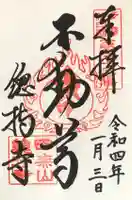 奉拝
令和四年
一月三日
不動尊
總持寺